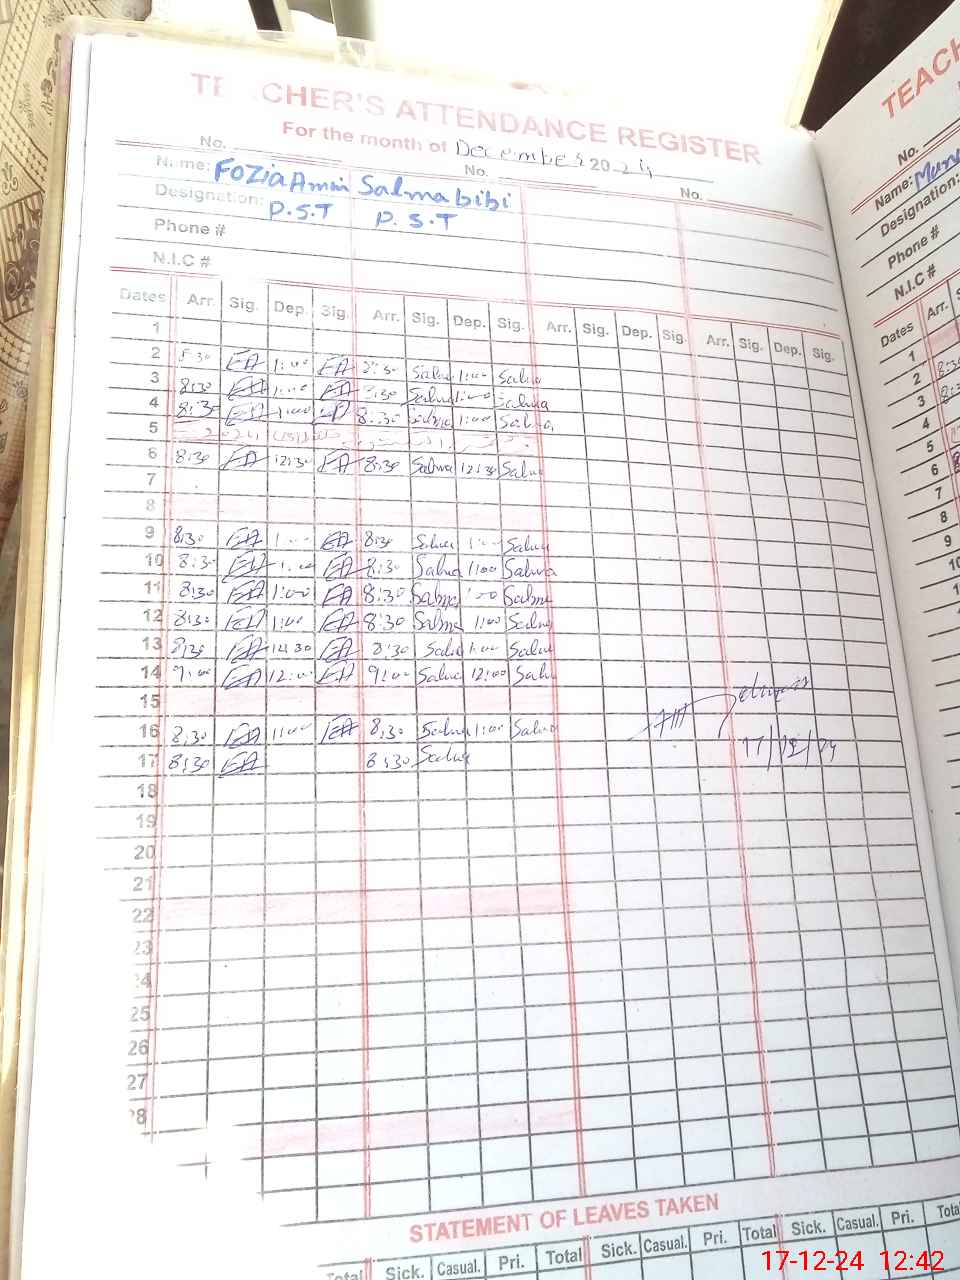 TEACHER'S ATTENDANCE REGISTER
For the month of December 2024
No. No. No.
Name: Fozia Amin Salma bibi
Designation: P.S.T P.S.T
Phone #
N.I.C #
Dates Arr. Sig. Dep. Sig. Arr. Sig. Dep. Sig. Arr. Sig. Dep. Sig. Arr. Sig. Dep. Sig.
1
2 8:30 FA 1:00 FA 8:30 Salma 1:00 Salma
3 8:30 FA 1:00 FA 8:30 Salma 1:00 Salma
4 8:30 FA 1:00 FA 8:30 Salma 1:00 Salma
5 2024
6 8:30 FA 12:30 FA 8:30 Salma 12:30 Salma
7
8
9 8:30 FA 1:00 FA 8:30 Salma 1:00 Salma
10 8:30 FA 1:00 FA 8:30 Salma 1:00 Salma
11 8:30 FA 1:00 FA 8:30 Salma 1:00 Salma
12 8:30 FA 1:00 FA 8:30 Salma 1:00 Salma
13 8:30 FA 12:30 FA 8:30 Salma 1:00 Salma
14 9:00 FA 12:00 FA 9:00 Salma 12:00 Salma
15
16 8:30 FA 1:00 FA 8:30 Salma 1:00 Salma
17 8:30 FA 8:30 Salma 17/12/24
18
19
20
21
22
23
24
25
26
27
28
STATEMENT OF LEAVES TAKEN
Total Sick. Casual. Pri. Total Sick. Casual. Pri. Total Sick. Casual. Pri. Total
TEACH
No.
Name:
Designation:
Phone #
N.I.C #
Dates Arr.
1
2 8:30
3
4
5
6
7
8
9
10
17-12-24 12:42